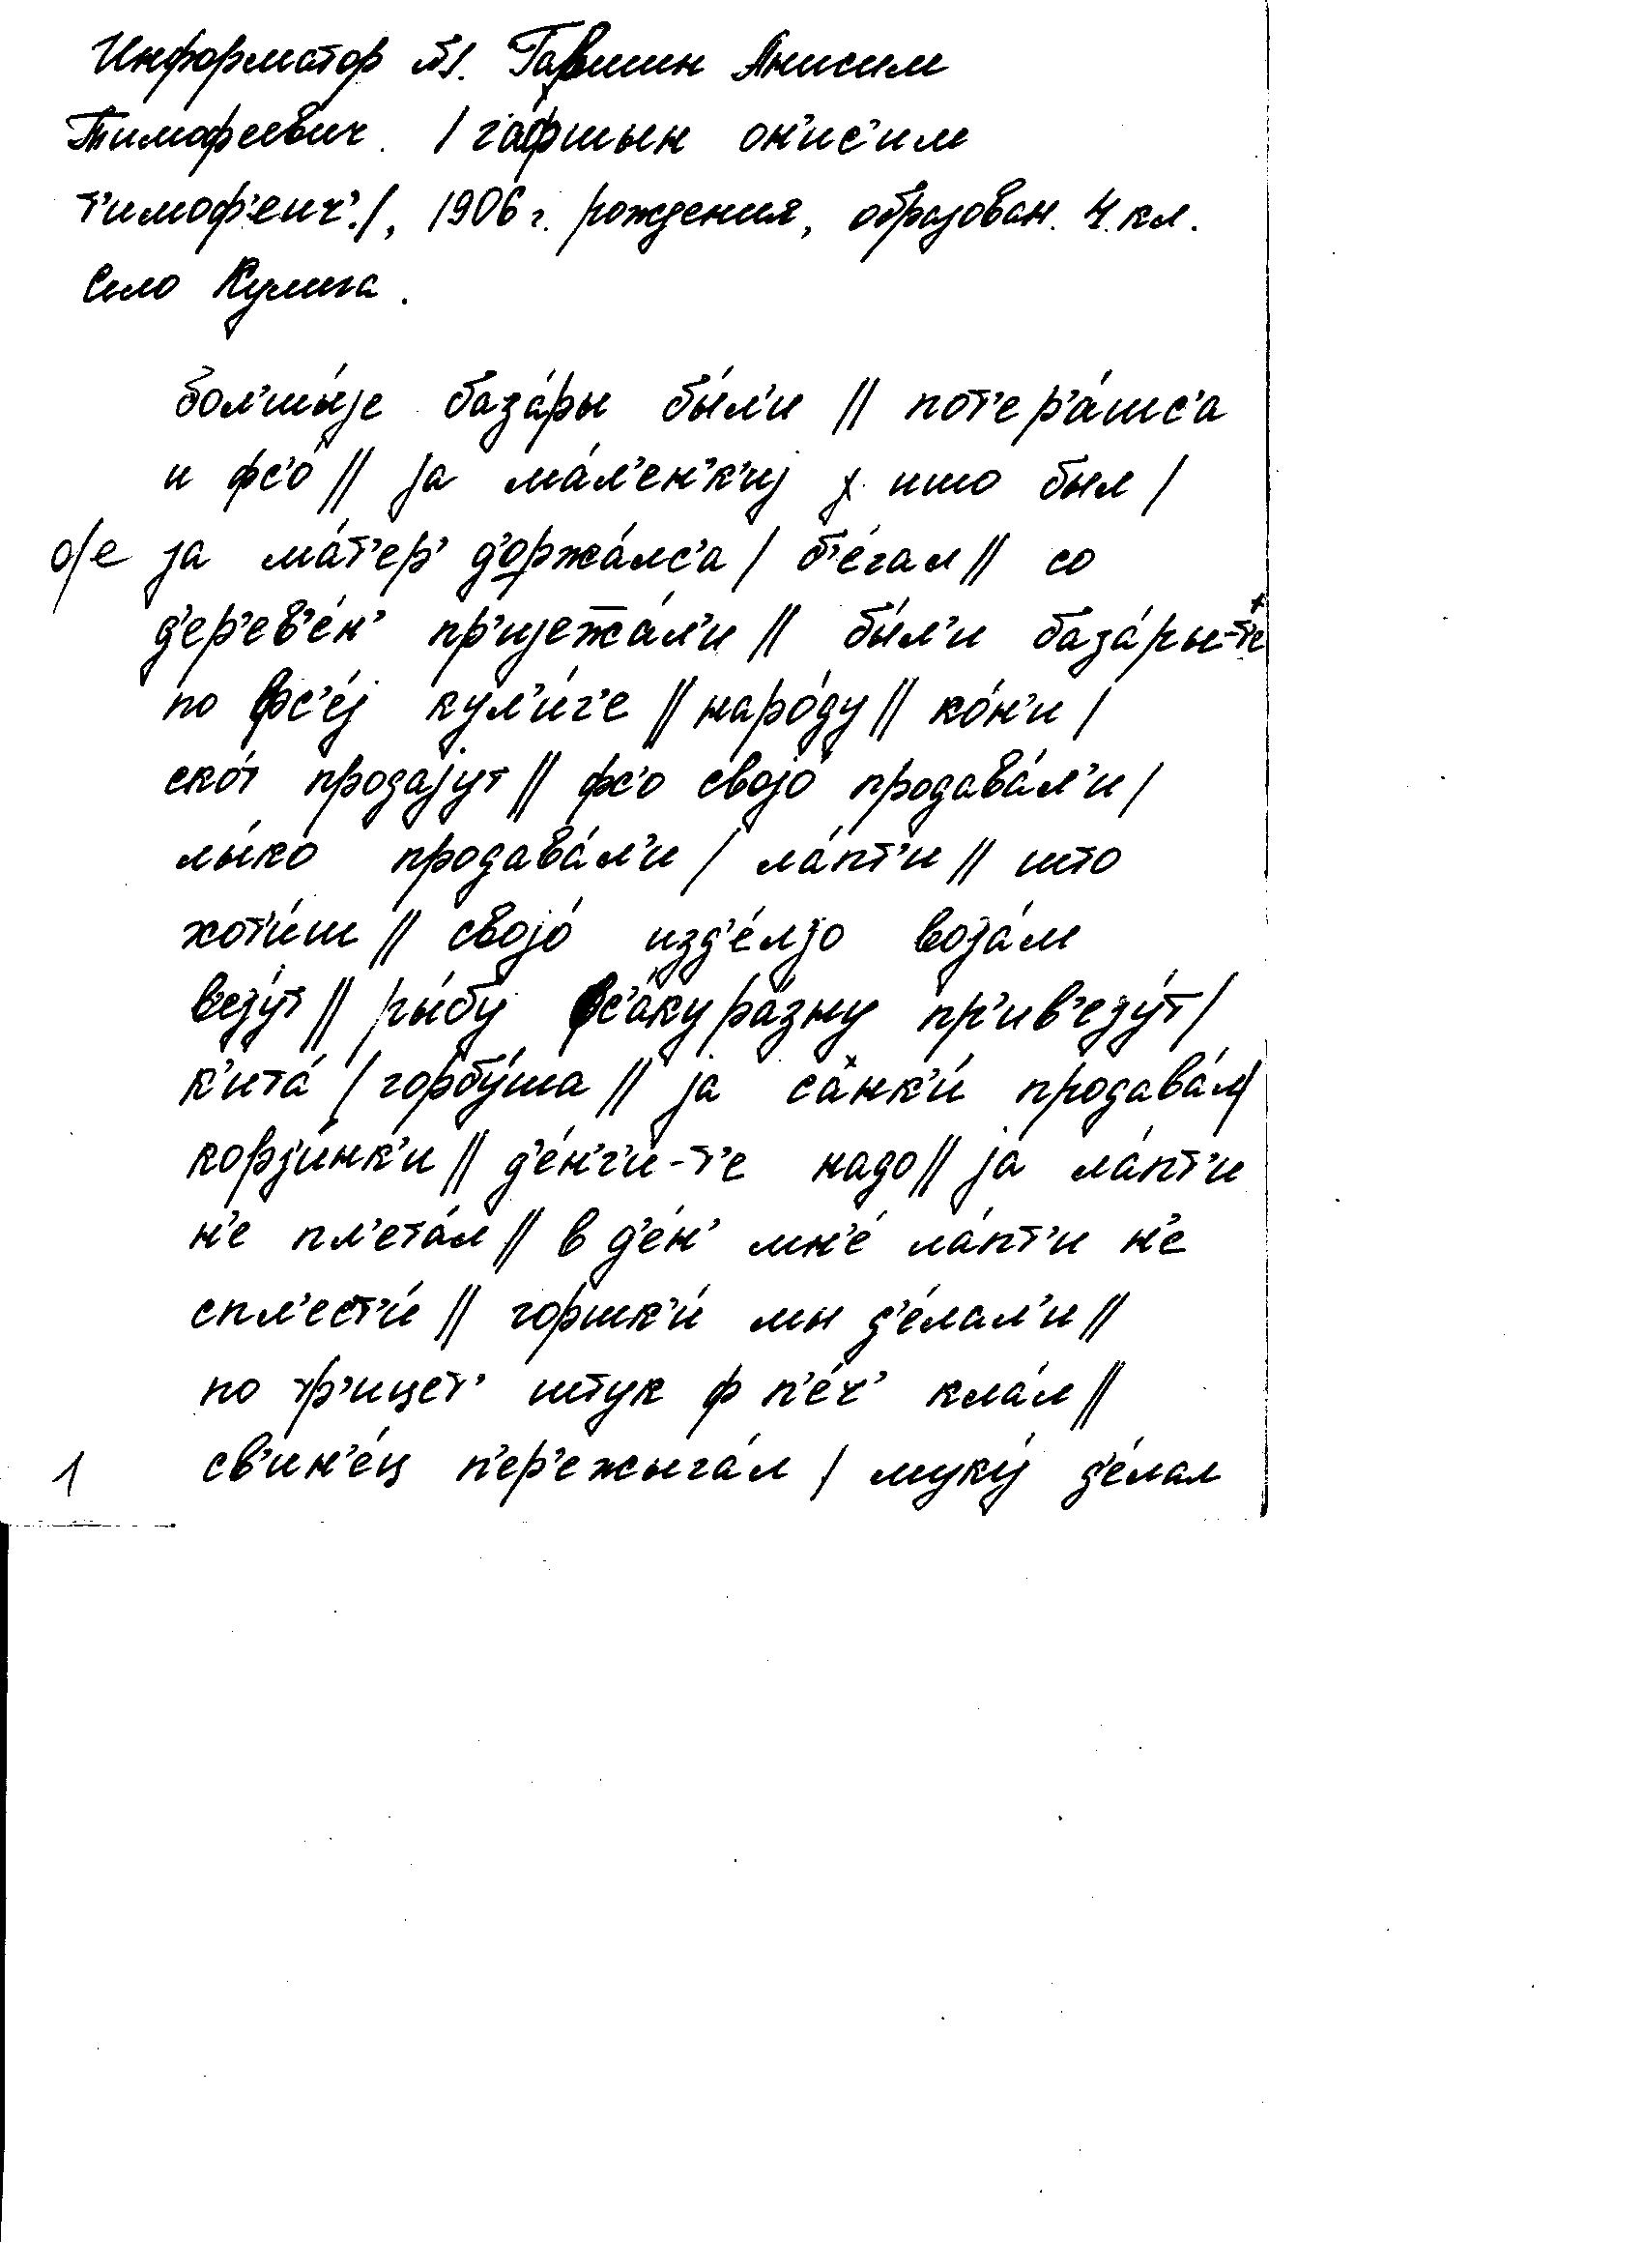 Информатор №1. Гавшин Анисим
Тимофеевич. /га́фшын он'ис'им
т'имоф'еич'./, 1906 г. рождения, образован. 4. кл.
Село Кулига.
бол'шы́jе база́ры бы́л'и // пот'ер'а́шс'а
и фс'о́ // jа ма́л'ен'к'иj ишо был /
о/е jа ма́т'ер' д'оржа́лс'а / б'е́гал // со
д'ер'ев'е́н' пр'иjежа́л'и // бы́л'и база́ры-т'е
по фс'е́j кул'и́г'е // наро́ду // ко́н'и /
ско́т продаjу́т // фс'о своjо́ продава́л'и /
лы́ко продава́л'и / ла́пт'и // што
хот'и́ш // своjо́ изд'е́лjо воза́м
в'езу́т // ры́бу фс'а́ку ра́зну пр'ив'езу́т /
к'ита́ / горбу́ша // jа санк'и́ продава́л /
корз'и́нк'и // д'е́н'г'и-т'е надо // jа́ ла́пт'и
н'е пл'ета́л // в д'е́н' мн'е́ ла́пт'и н'е
спл'ест'и́ // горшк'и́ мы д'е́лал'и //
по тр'ицет' штук ф п'е́ч' кла́л //
св'ин'е́ц п'ер'ежыга́л / муку́ д'е́лал
1